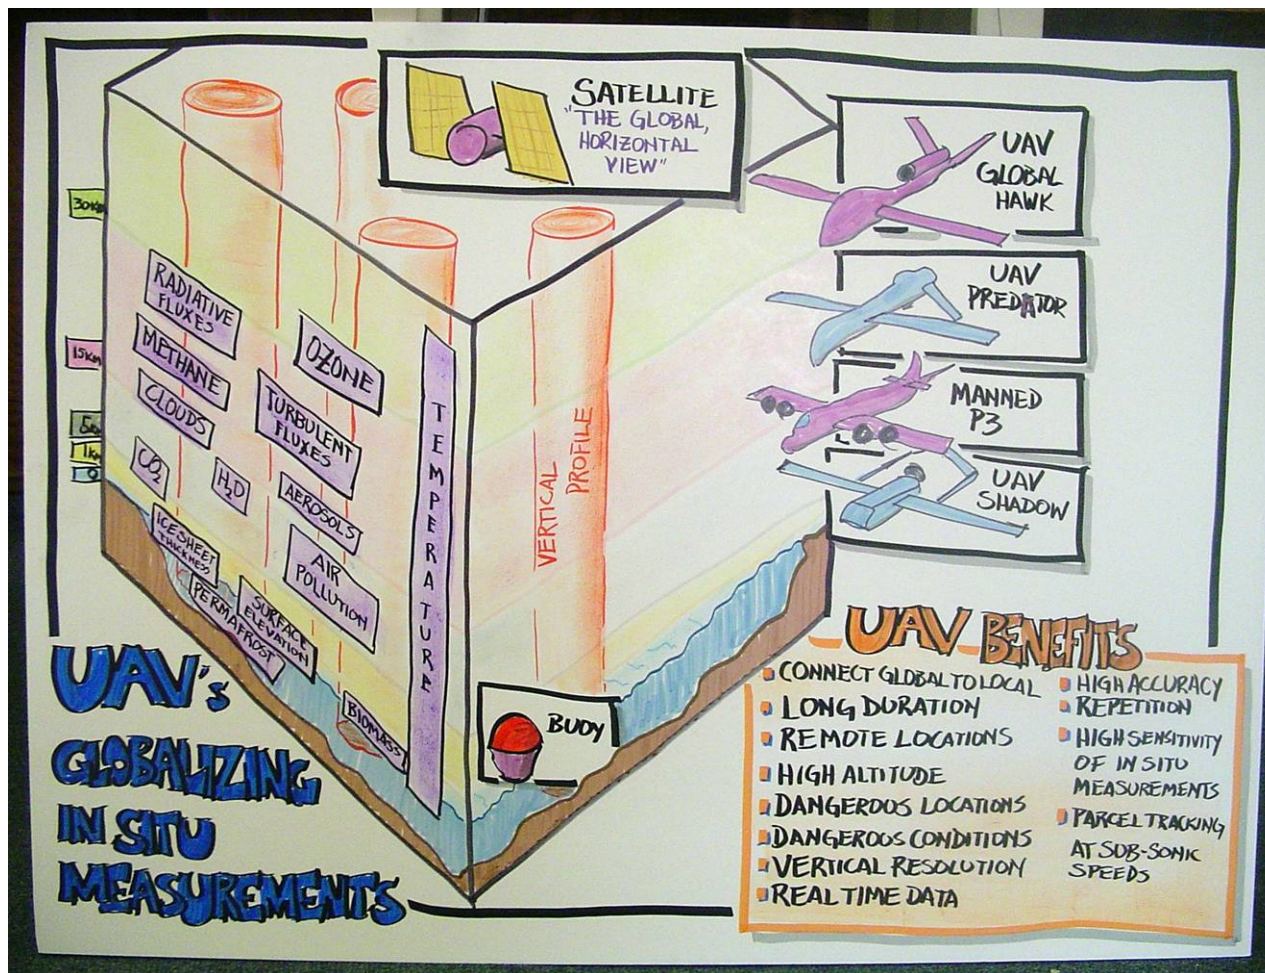 SATELLITE
"THE GLOBAL,
HORIZONTAL
VIEW"
UAV
GLOBAL
HAWK
UAV
PREDATOR
MANNED
P3
UAV
SHADOW
30KM
15KM
5KM
1KM
0
RADIATIVE
FLUXES
METHANE
CLOUDS
CO2
H2O
OZONE
TURBULENT
FLUXES
AEROSOLS
AIR
POLLUTION
ICE SHEET
THICKNESS
PERMAFROST
SURFACE
ELEVATION
BIOMASS
TEMPERATURE
VERTICAL
PROFILE
BUOY
UAV's
GLOBALIZING
IN SITU
MEASUREMENTS
UAV BENEFITS
CONNECT GLOBAL TO LOCAL
LONG DURATION
REMOTE LOCATIONS
HIGH ALTITUDE
DANGEROUS LOCATIONS
DANGEROUS CONDITIONS
VERTICAL RESOLUTION
REAL TIME DATA
HIGH ACCURACY
REPETITION
HIGH SENSITIVITY
OF IN SITU
MEASUREMENTS
PARCEL TRACKING
AT SUB-SONIC
SPEEDS